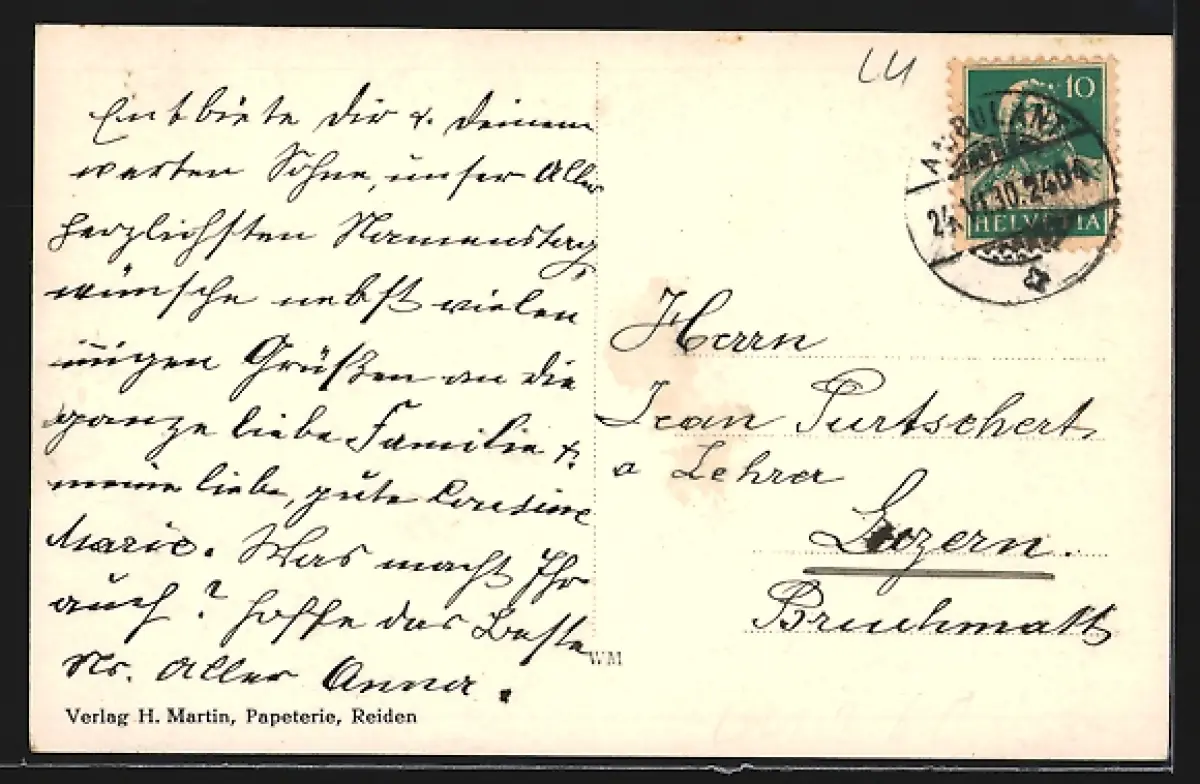 Entbiete Dir & Deinem
werten Sohne, unser Aller
herzlichsten Namenstag
wünsche nebst vielen
innigen Grüßen an die
ganze liebe Familie &
meine liebe, gute Cousine
Marie. Was macht Ihr
auch? Hoffe das Beste
Aller Anna.
Verlag H. Martin, Papeterie, Reiden
WM
LU
10
HELVETIA
AMBULANT
24.VI.30.2404
Herrn
Jean Purtschert
a Lehrer
Luzern.
Bruchmatt